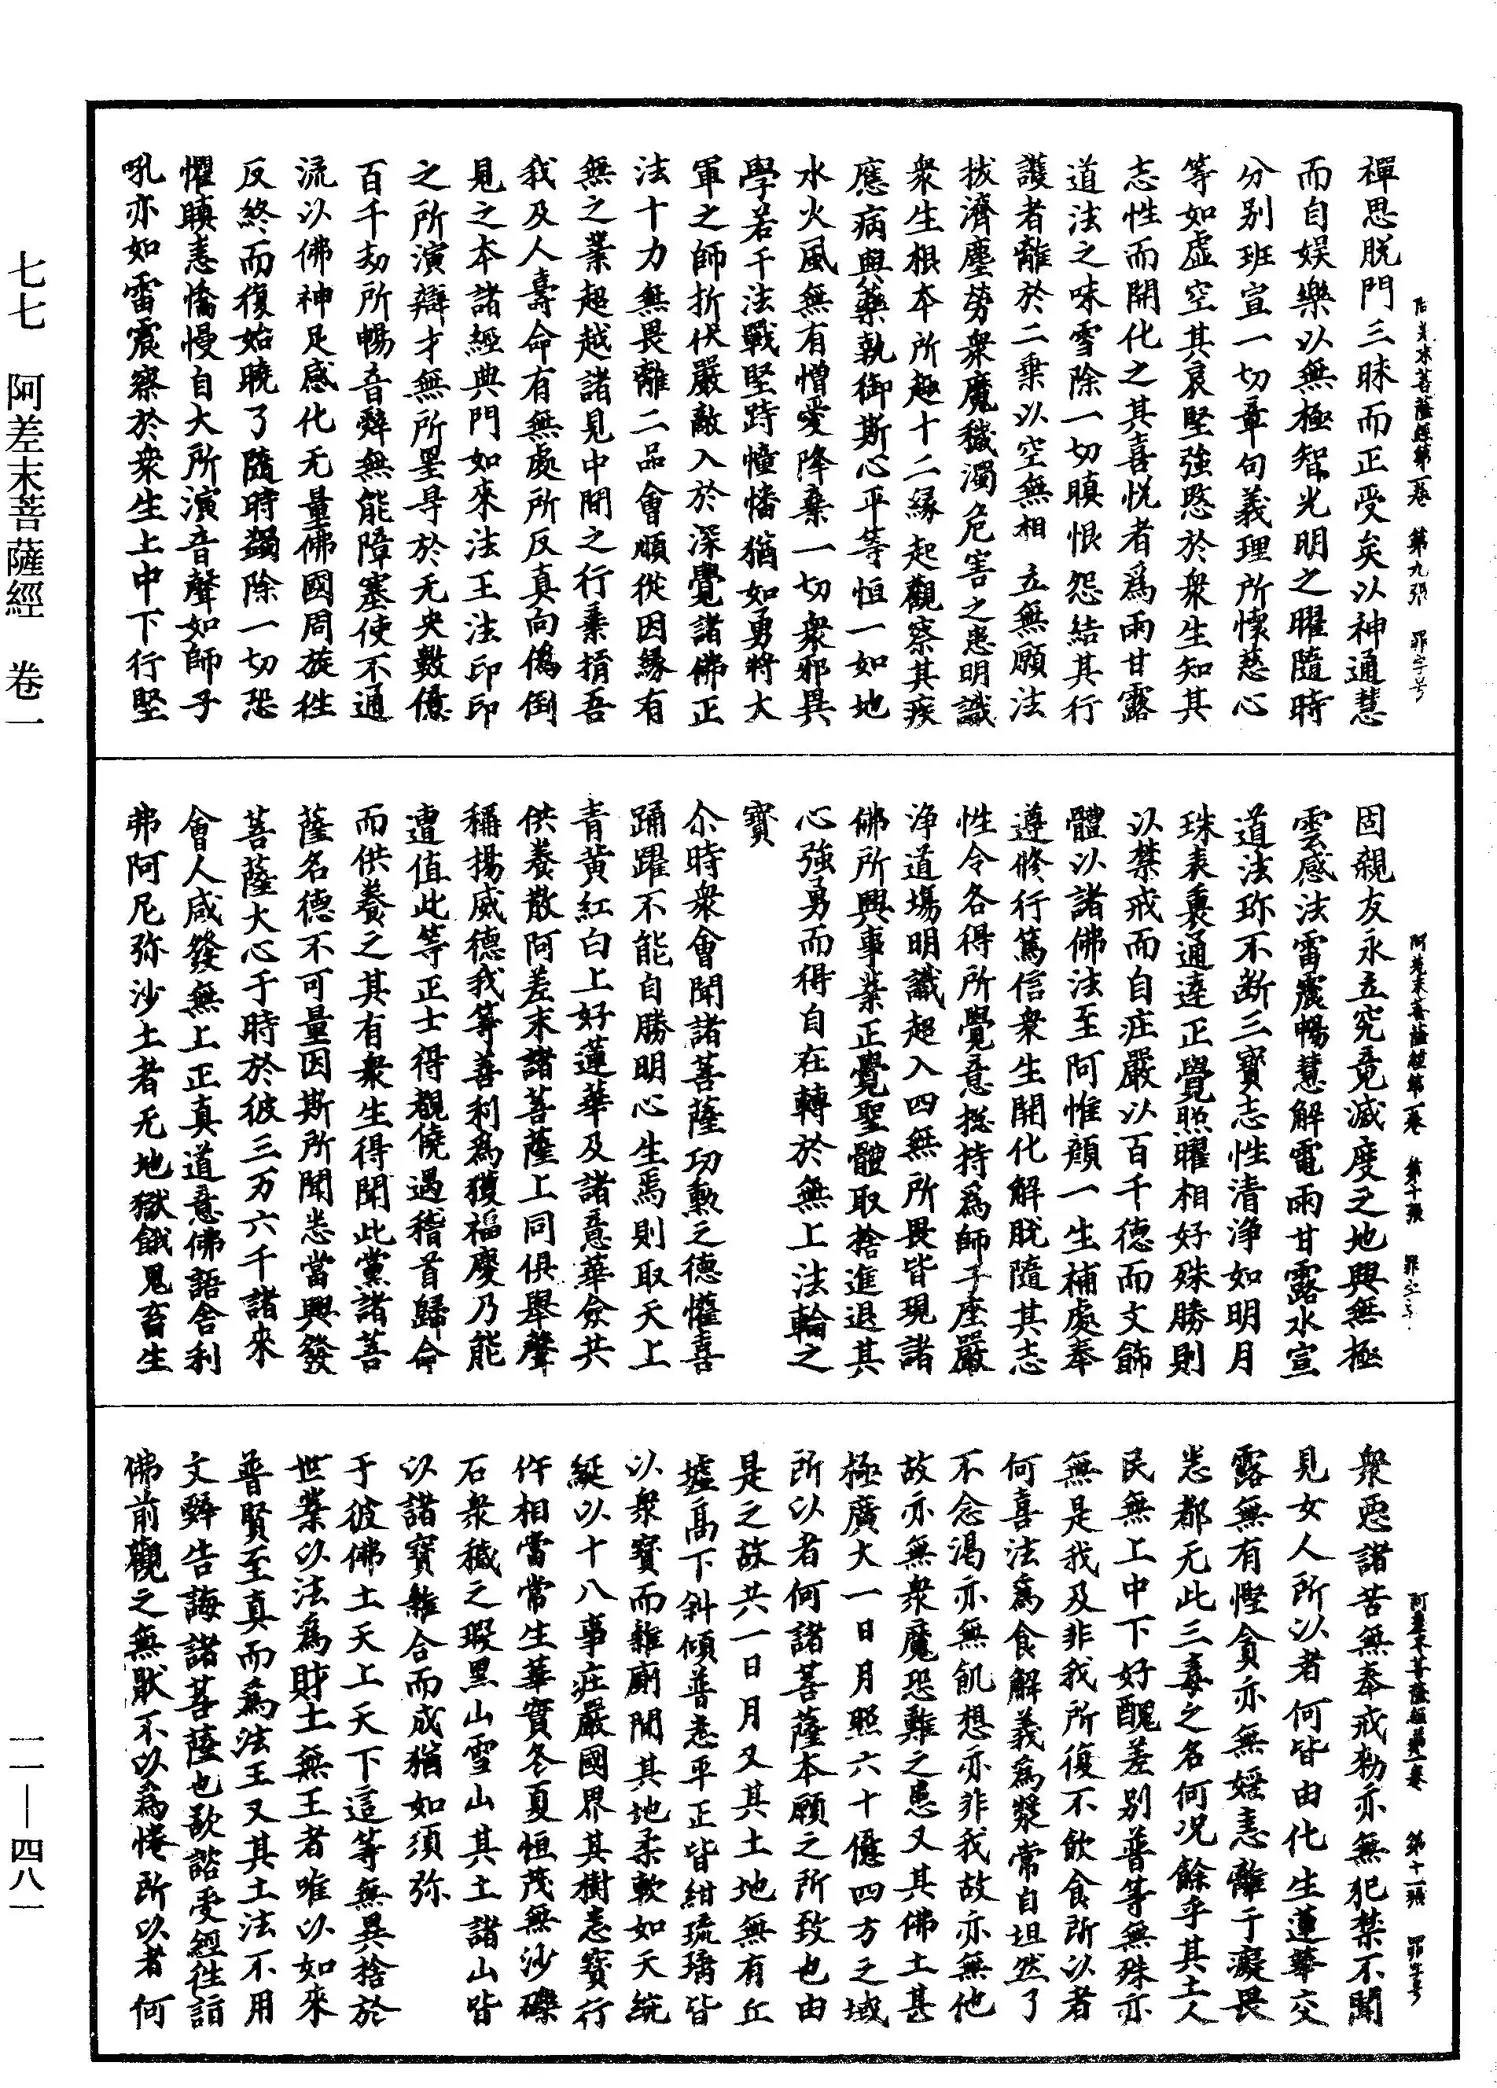 七七　阿差末菩薩經　卷一
一一—四八一
阿差末菩薩經第一卷　第九張　罪字号
禪思脫門三昧而正受矣以神通慧
而自娛樂以無極智光明之曜隨時
分別班宣一切章句義理所懷慈心
等如虛空其哀堅強愍於衆生知其
志性而開化之其喜悅者爲雨甘露
道法之味雪除一切瞋恨怨結其行
護者離於二乘以空無相　立無願法
拔濟塵勞衆魔穢濁危害之患明識
衆生根本所趣十二緣起觀察其疾
應病與藥執御斯心平等恒一如地
水火風無有憎愛降棄一切衆邪異
學若干法戰堅跱幢幡猶如勇將大
軍之師折伏嚴敵入於深覺諸佛正
法十力無畏離二品會順從因緣有
無之業超越諸見中間之行棄捐吾
我及人壽命有無處所反真向僞倒
見之本諸經典門如來法王法印印
之所演辯才無所罣㝵於无央數億
百千劫所暢音辭無能障塞使不通
流以佛神足感化无量佛國周旋往
反終而復始曉了隨時蠲除一切恐
懼瞋恚憍慢自大所演音聲如師子
吼亦如雷震察於衆生上中下行堅
阿差末菩薩經第一卷　第十張　罪字号
固親友永立究竟滅度之地興無極
雲感法雷震暢慧解電雨甘露水宣
道法珎不断三寶志性清淨如明月
珠表裏通達正覺照曜相好殊勝則
以禁戒而自庄嚴以百千德而文飾
體以諸佛法至阿惟顔一生補處奉
遵修行篤信衆生開化解脫隨其志
性令各得所覺意揔持爲師子座嚴
淨道場明識超入四無所畏皆現諸
佛所興事業正覺聖體取捨進退其
心強勇而得自在轉於無上法輪之
寶
尒時衆會聞諸菩薩功勳之德懽喜
踊躍不能自勝明心生焉則取天上
青黄紅白上好蓮華及諸意華僉共
供養散阿差末諸菩薩上同俱舉聲
稱揚威德我等善利爲獲福慶乃能
遭值此等正士得覩僥遇稽首歸命
而供養之其有衆生得聞此黨諸菩
薩名德不可量因斯所聞悉當興發
菩薩大心于時於彼三万六千諸來
會人咸發無上正真道意佛語舍利
弗阿尼弥沙土者无地獄餓鬼畜生
阿差末菩薩經第一卷　第十一張　罪字号
衆惡諸苦無奉戒勑亦無犯禁不聞
見女人所以者何皆由化生蓮華交
露無有慳貪亦無婬恚離于癡畏
悉都无此三毒之名何况餘乎其土人
民無上中下好醜差別普等無殊亦
無是我及非我所復不飲食所以者
何喜法爲食解義爲漿常自坦然了
不念渴亦無飢想亦非我故亦無他
故亦無衆魔恐難之患又其佛土甚
極廣大一日月照六十億四方之域
所以者何諸菩薩本願之所致也由
是之故共一日月又其土地無有丘
墟高下斜傾普悉平正皆紺琉璃皆
以衆寶而雜廁間其地柔軟如天綩
綖以十八事庄嚴國界其樹悉寶行
伴相當常生華實冬夏恒茂無沙礫
石衆穢之瑕黑山雪山其土諸山皆
以諸寶雜合而成猶如須弥
于彼佛土天上天下這等無異捨於
世業以法爲財土無王者唯以如來
普賢至真而爲法王又其土法不用
文辭告誨諸菩薩也歎諮受經往詣
佛前觀之無猒不以爲惓所以者何